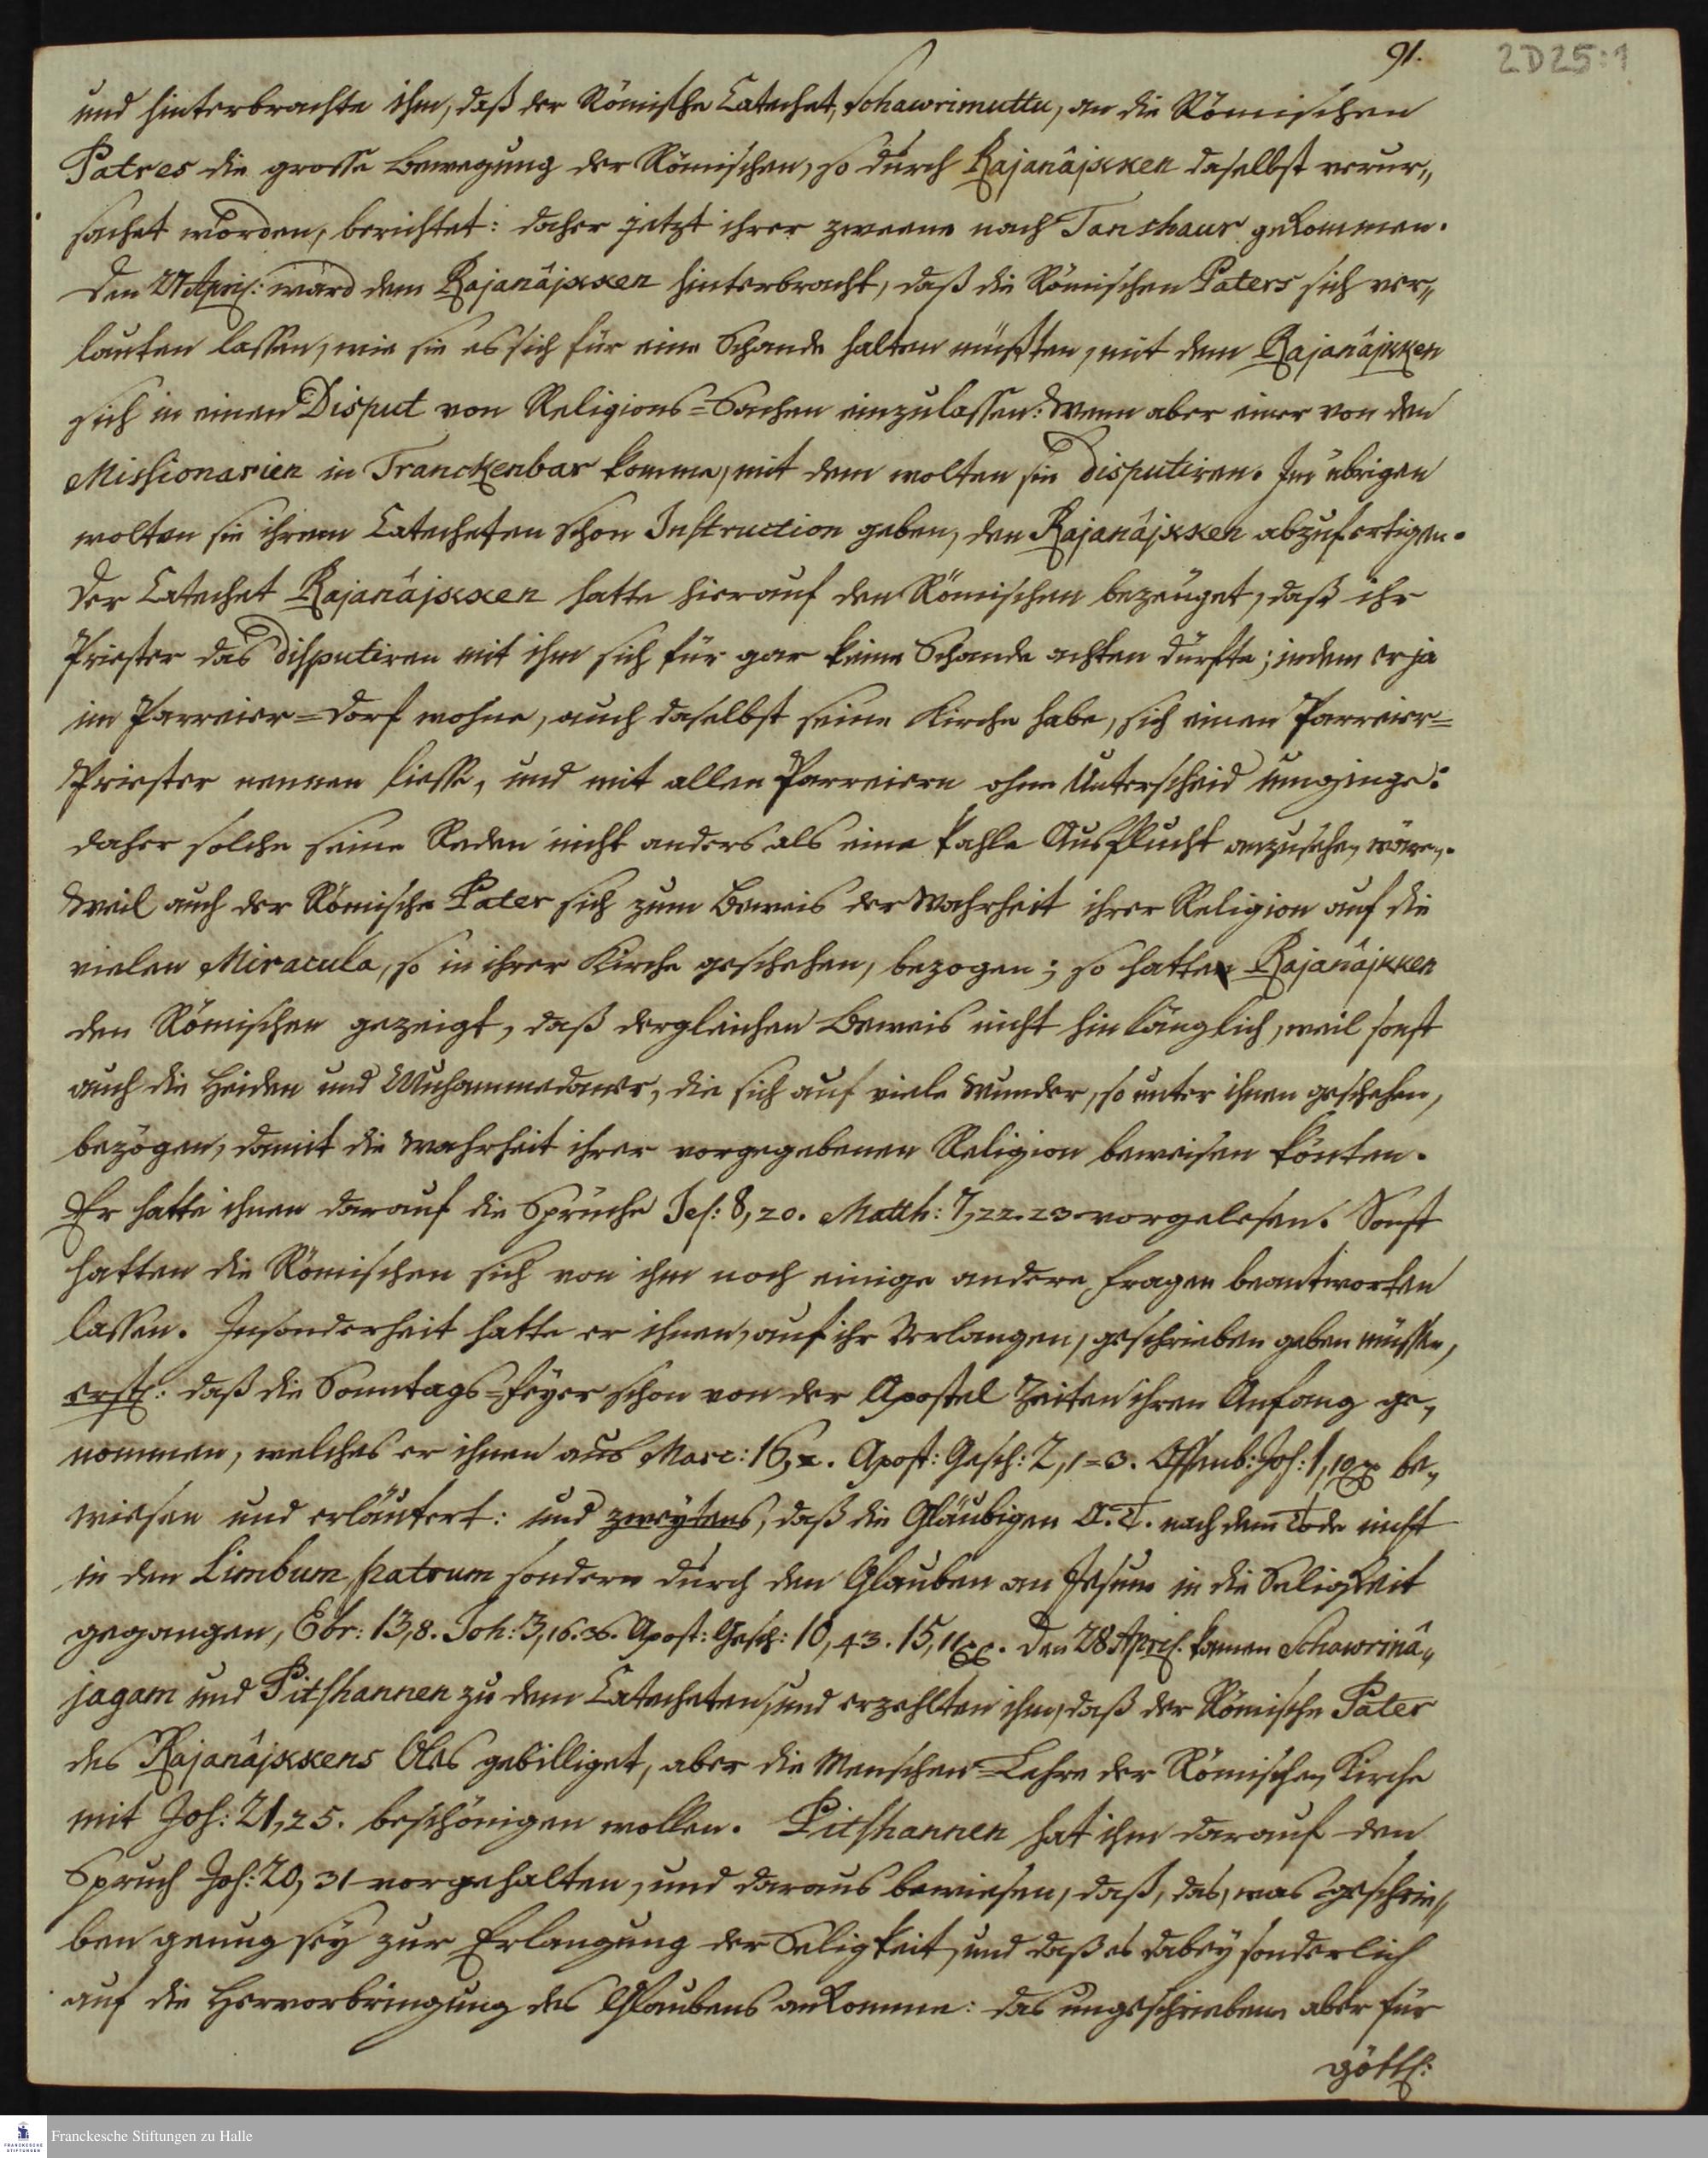 91.
2D25:1
und hinterbrachte ihm, daß der Römische Catechet, Schawrimuttu, an die Römischen
Patres die grosse Bewegung der Römischen, so durch Rajanâjkken daselbst verur„
sachet worden, berichtet: daher jetzt ihrer zweene nach Tanschaur gekommen.
Den 27 April: ward dem Rajanâjkken hinterbracht, daß die Römischen Paters sich ver„
lauten lassen, wie sie es sich für eine Schande halten müßten, mit dem Rajanâjkken
sich in einen Disput von Religions=Sachen einzulassen: Wenn aber einer von den
Missionarien in Tranckenbar komme, mit dem wolten sie disputiren. Im übrigen
wolten sie ihrem Catecheten schon Instruction geben, den Rajanâjkken abzufertigen.
Der Catechet Rajanâjkken hatte hierauf den Römischen bezeuget, daß ihr
Priester das disputiren mit ihm sich für gar keine Schande achten dürfte; indem er ja
im Parreier=Dorf wohne, auch daselbst seine Kirche habe, sich einen Parreier=
Priester nennen liesse, und mit allen Parreiern ohne Unterscheid umginge:
daher solche seine Reden nicht anders als eine kahle Ausflucht anzusehen wären.
Weil auch der Römische Pater sich zum Beweis der Wahrheit ihrer Religion auf die
vielen Miracula, so in ihrer Kirche geschehen, bezogen; so hatte Rajanâjkken
den Römischen gezeigt, daß dergleichen Beweis nicht hinlänglich, weil sonst
auch die Heiden und Muhammedaner, die sich auf viele Wunder, so unter ihnen geschehen,
bezögen, damit die Wahrheit ihrer vorgegebenen Religion beweisen könten.
Er hatte ihnen darauf die Sprüche Jes: 8,20. Matth: 7,22.23 vorgelesen. Sonst
hatten die Römischen sich von ihm noch einige andere Fragen beantworten
lassen. Insonderheit hatte er ihnen, auf ihr Verlangen, geschrieben geben müssen,
erstl: daß die Sonntags=Feyer schon von der Apostel Zeiten ihren Anfang ge„
nommen, welches er ihnen aus Marc: 16,2. Apost: Gesch: 2,1=3. Offenb: Joh: 1,10 be„
wiesen und erläutert: und zweytens, daß die Gläubigen A. T. nach dem Tode nicht
in den Limbum patrum sondern durch den Glauben an Jesum in die Seligkeit
gegangen, Ebr: 13,8. Joh: 3,16.36. Apost: Gesch: 10,43. 15,11 Den 28 April. kamen Schawrinâ„
jagam und Pitshannen zu dem Catecheten, und erzehlten ihm, daß der Römische Pater
des Rajanâjkkens Oles gebilliget, aber die Menschen=Lehre der Römischen Kirche
mit Joh: 21,25. beschönigen wollen. Pitshannen hat ihm darauf den
Spruch Joh: 20,31 vorgehalten, und daraus bewiesen, daß, das, was geschrie„
ben genug sey zur Erlangung der Seligkeit, und daß es dabey sonderlich
auf die Hervorbringung des Glaubens ankomme: das ungeschriebene aber für
göttl:
Franckesche Stiftungen zu Halle